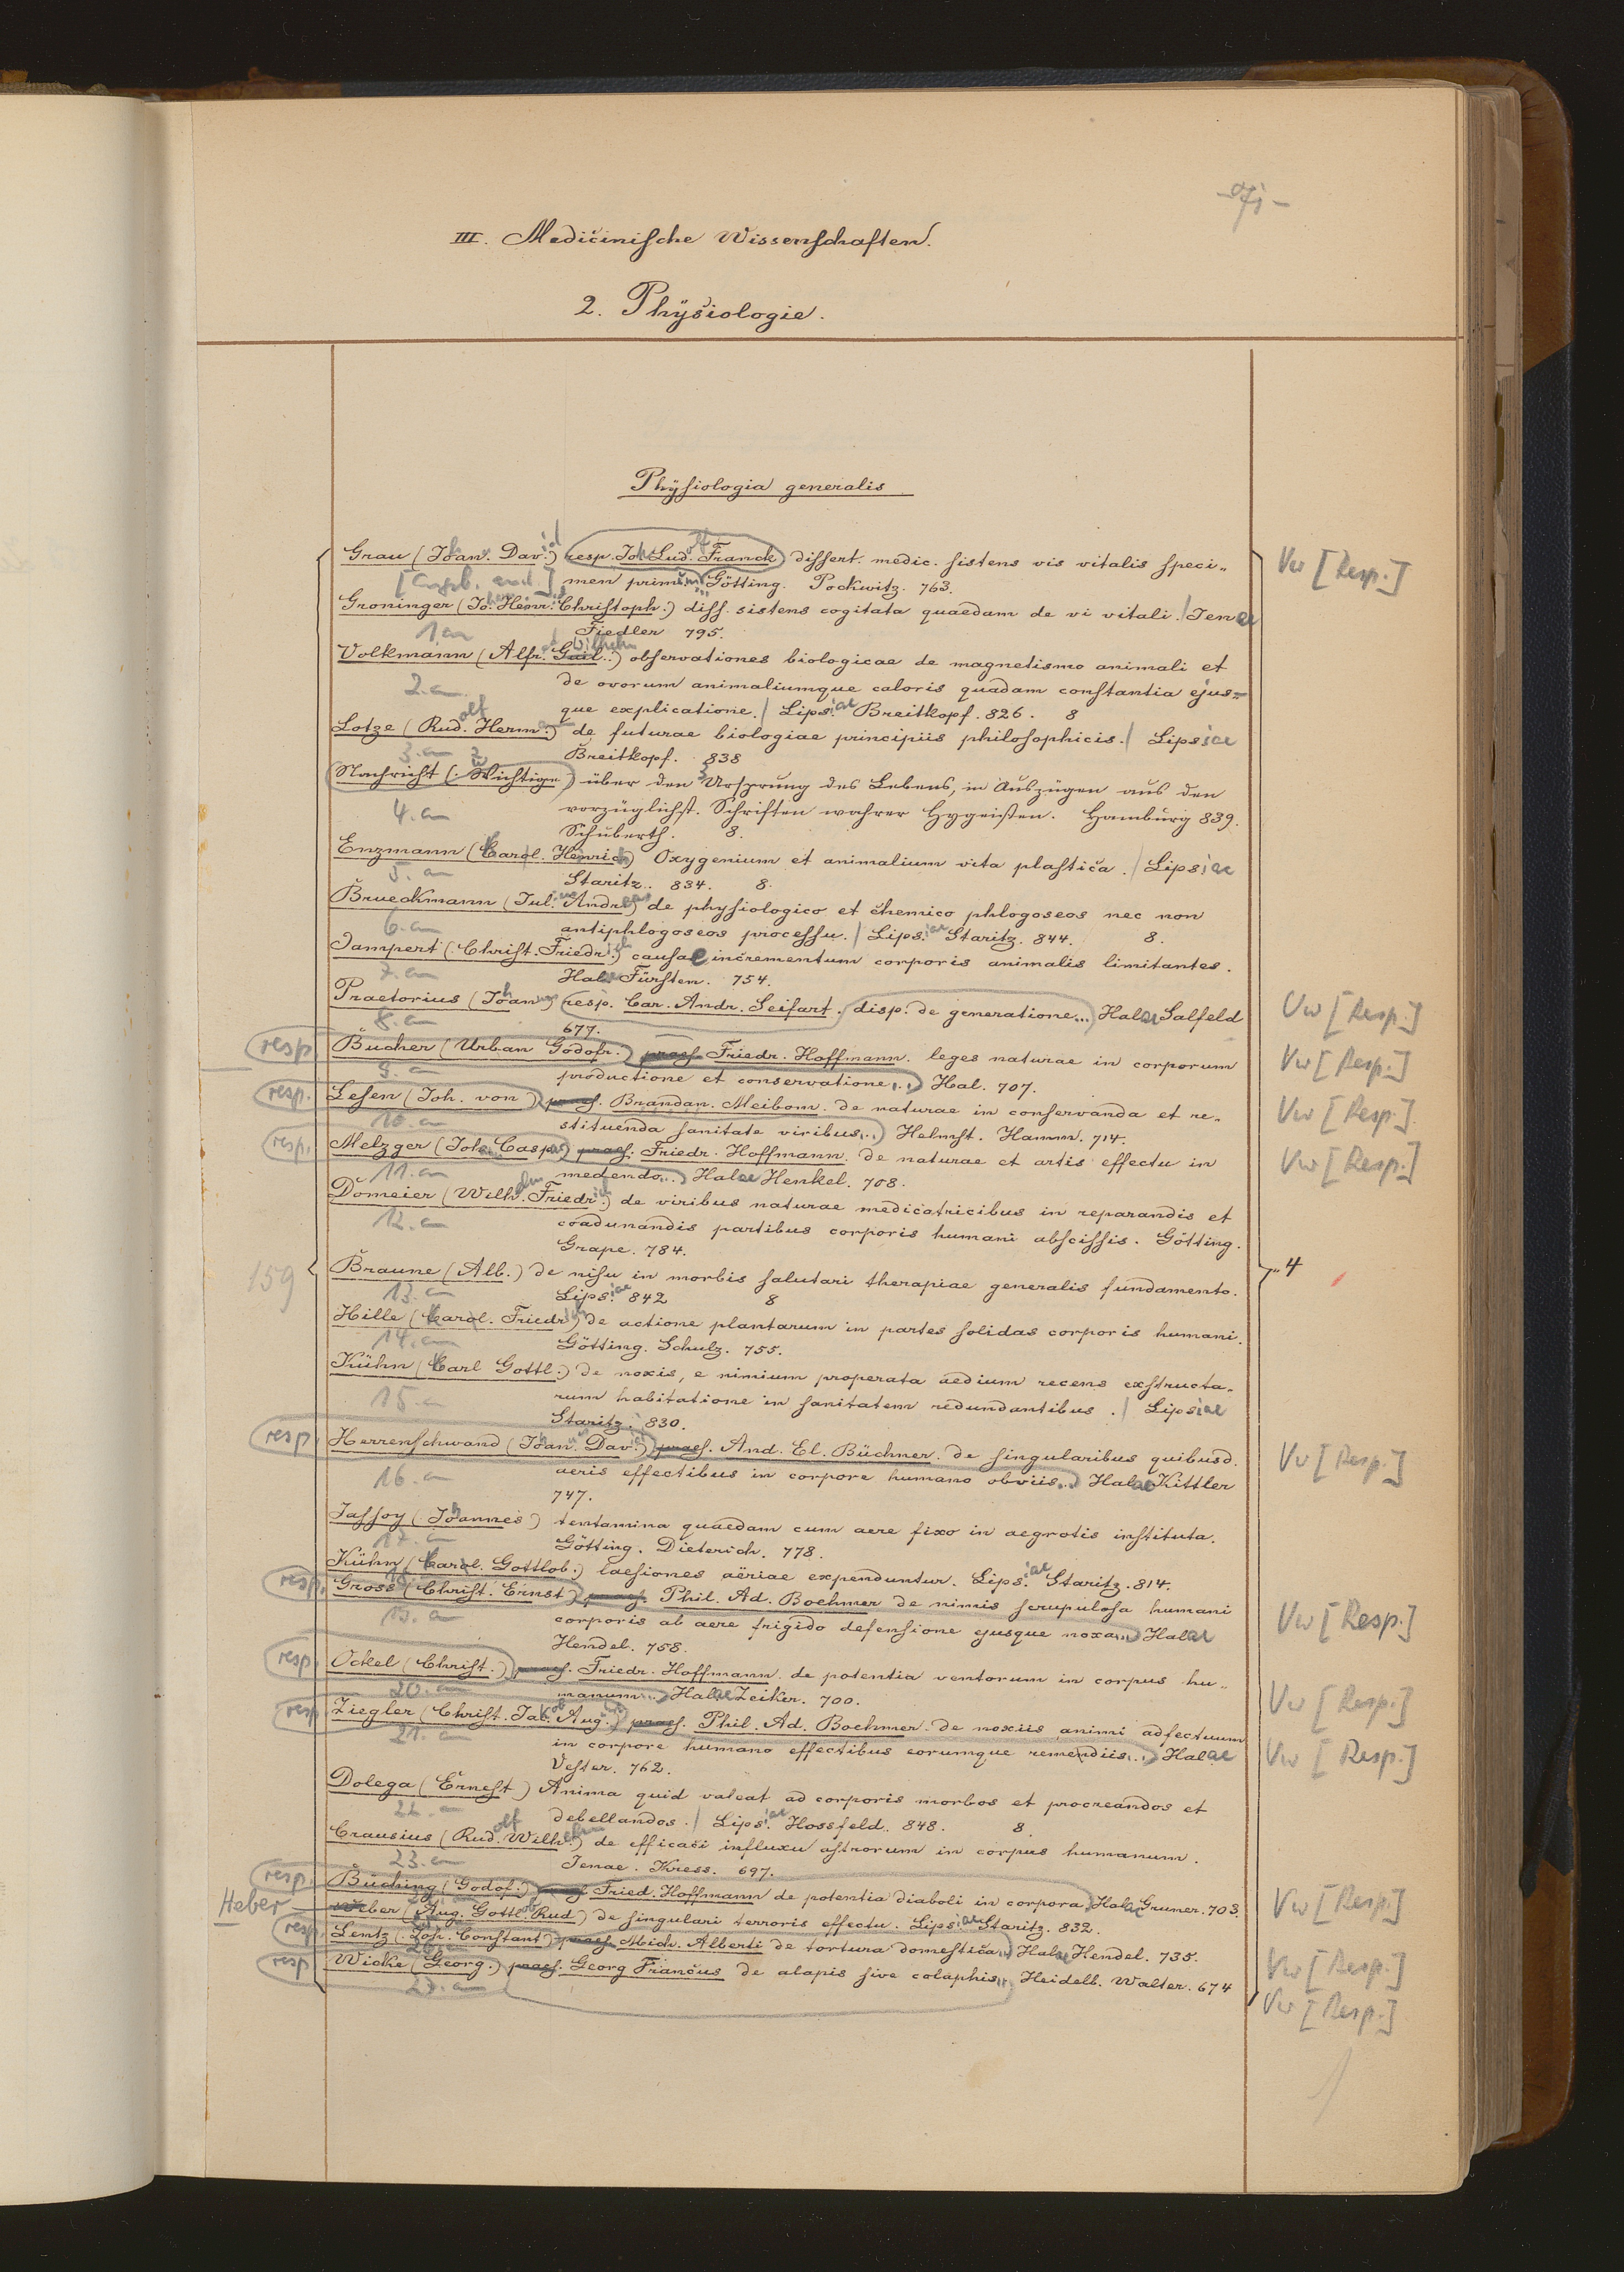 III. Medicinische Wissenschaften.
2. Physiologie.
Physiologia generalis
Grau (Johan. David) resp. Joh. Lud. Franck dissert. medic. sistens vis vitalis speci- Vw [Resp.]
men primum... Götting. Pockwitz. 763.
Groninger (Jo. Heinr. Christoph.) diss. sistens cogitata quaedam de vi vitali. / Jenae
1 an Fiedler 795.
Volkmann (Alfr. Guil.. Wilhelm) observationes biologicae de magnetismo animali et
2. an de ovorum animaliumque caloris quadam constantia ejus-
que explicatione. / Lipsiae Breitkopf. 826. 8
Lotze (Rudolf Hermann) de futurae biologiae principiis philosophicis. / Lipsiae
3. an Breitkopf. 838
Nachricht (. Wichtige) über den Ursprung des Lebens, in Auszügen aus den
4. an vorzüglichst. Schriften wahrer Hygeisten. Hamburg 839.
Schuberth. 8.
Enzmann (Carol. Henrich) Oxygenium et animalium vita plastica. / Lipsiae
5. an Staritz.. 834. 8.
Brueckmann (Julius Andreas) de physiologico et chemico phlogoseos nec non
6. an antiphlogoseos processu. / Lipsiae Staritz. 844. 8.
Jampert (. Christ. Friedrich) causae incrementum corporis animalis limitantes.
7. an Halae Fürsten. 754.
Praetorius (Johannes) resp. Car. Andr. Seifart. disp. de generatione... Halae Salfeld Vw [Resp.]
8. an 677.
resp. Bucher (Urban Godofr.) praes. Friedr. Hoffmann. leges naturae in corporum Vw [Resp.]
9. an productione et conservatione... Hal. 707.
resp. Lesen (Joh. von) praes. Brandan. Meibom. de naturae in conservanda et re- Vw [Resp.]
10. an stituenda sanitate viribus... Helmst. Hamm. 714.
resp. Melzger (Joh. Caspar) praes. Friedr. Hoffmann. de naturae et artis effectu in Vw [Resp.]
11. an medendo... Halae Henkel. 708.
Domeier (Wilhelm Friedrich) de viribus naturae medicatricibus in reparandis et
12. an coadunandis partibus corporis humani abscissis. Götting.
Grape. 784. 4
159 Braune (Alb.) de nisu in morbis salutari therapiae generalis fundamento.
13. an Lipsiae 842 8
Hille (Carol. Friedrich) de actione plantarum in partes solidas corporis humani.
14. an Götting. Schulz. 755.
Kühn (Carl Gottl.) de noxis, e nimium properata aedium recens exstructa-
15. an rum habitatione in sanitatem redundantibus. / Lipsiae
Staritz. 830.
resp. Herrenschwand (Johan. David) praes. And. El. Büchner. de singularibus quibusd. Vw [Resp.]
16. an aeris effectibus in corpore humano obviis... Halae Kittler
747.
Jassoy (Johannes) tentamina quaedam cum aere fixo in aegrotis instituta.
17. an Götting. Dieterich. 778.
Kühn (Carol. Gottlob.) laesiones aëriae expenduntur. Lipsiae Staritz. 814.
resp. Gross (Christ. Ernst) praes. Phil. Ad. Boehmer de nimis scrupulosa humani Vw [Resp.]
19. an corporis ab aere frigido defensione ejusque noxa... Halae
Hendel. 758.
resp. Ockel (Christ.) praes. Friedr. Hoffmann. de potentia ventorum in corpus hu-
20. an manum... Halae Zeiker. 700. Vw [Resp.]
resp. Ziegler (Christ. Jakob Aug.) praes. Phil. Ad. Boehmer. de noxiis animi adfectuum
21. an in corpore humano effectibus eorumque remendiis... Halae Vw [Resp.]
Vester. 762.
Dolega (Ernest) Anima quid valeat ad corporis morbos et procreandos et
22. an debellandos. / Lipsiae Hossfeld. 848. 8.
Crausius (Rudolf Wilhelm) de efficaci influxu astrorum in corpus humanum.
23. an Jenae. Kress. 697.
resp. Büching (Godof.) praes. Fried. Hoffmann de potentia diaboli in corpora Halae Gruner. 703. Vw [Resp.]
Heber (Aug. Gottlob Rud) de singulari terroris effectu. Lipsiae Staritz. 832.
resp. Lentz (Joh. Constant) praes. Mich. Alberti de tortura domestica... Halae Hendel. 735. Vw [Resp.]
resp. Wicke (Georg.) praes. Georg Francus de alapis sive colaphis... Heidelb. Walter. 674 Vw [Resp.]
27. an